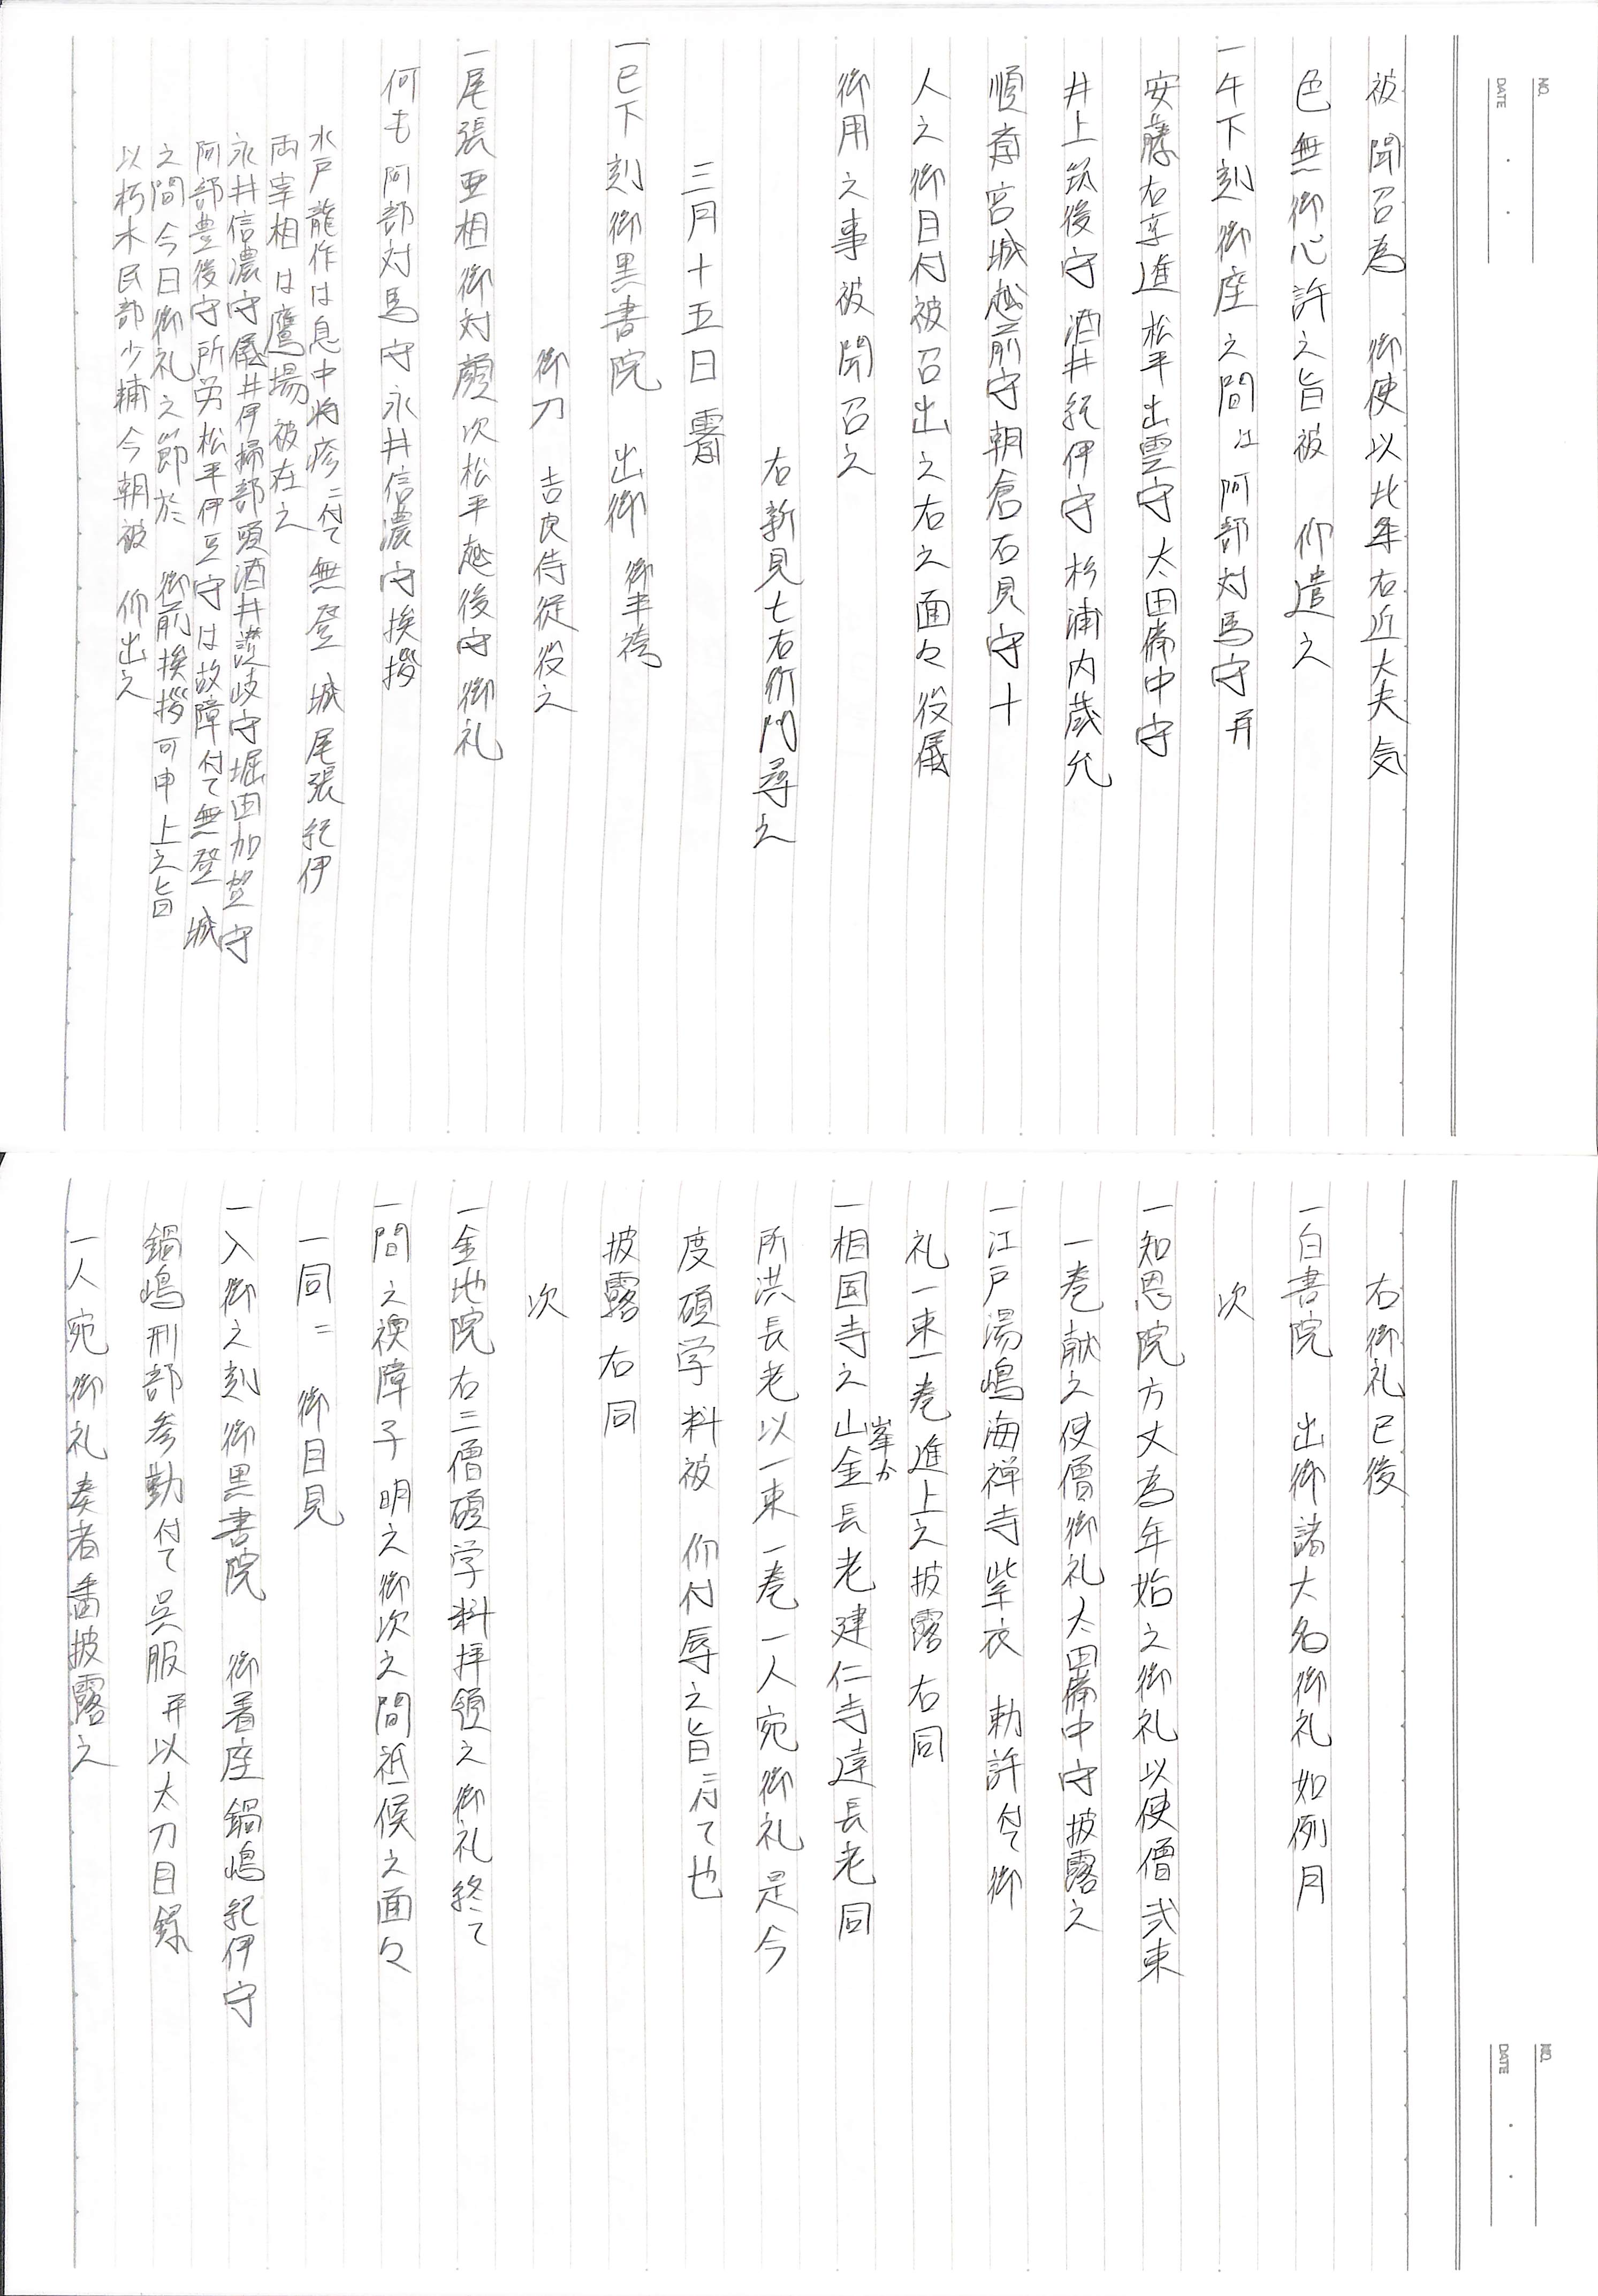 NO.
DATE
被聞召為　御使以此年右近大夫気
色無御心許之旨被　仰遣之
一午下刻御座之間江阿部対馬守并
安藤右京進松平出雲守太田備中守
井上筑後守酒井紀伊守杉浦内蔵允
順斎宮城越前守朝倉石見守十
人之御目付被召出之右之面々役儀
御用之事被聞召之
右新見七右衛門尋之
三月十五日　霽
一巳下刻御黒書院　出御　御半袴
御刀　吉良侍従役之
一尾張亜相御対顔次松平越後守御礼
何も阿部対馬守永井信濃守挨拶
水戸龍作は息中将疹ニ付て無登　城尾張紀伊
両宰相は鷹場被在之
永井信濃守儀井伊掃部頭酒井讃岐守堀田加賀守
阿部豊後守所労松平伊豆守は故障付て無登　城
之間今日御礼之節於　御前挨拶可申上之旨
以朽木民部少輔今朝被　仰出之
NO.
DATE
右御礼已後
一白書院　出御諸大名御礼如例月
次
一知恩院方丈為年始之御礼以使僧弐束
一巻献之使僧御礼太田備中守披露之
一江戸湯嶋海禅寺紫衣　勅許付て御
礼一束一巻進上之披露右同
一相国寺之山金長老建仁寺達長老同
峯カ
所洪長老以一束一巻一人宛御礼是今
度碩学料被　仰付辱之旨ニ付て也
披露右同
次
一金地院右三僧碩学料拝領之御礼終て
一間之襖障子明之御次之間祗候之面々
一同ニ　御目見
一入御之刻御黒書院　御着座鍋嶋紀伊守
鍋嶋刑部参勤付て呉服并以太刀目録
一人宛御礼奏者番披露之